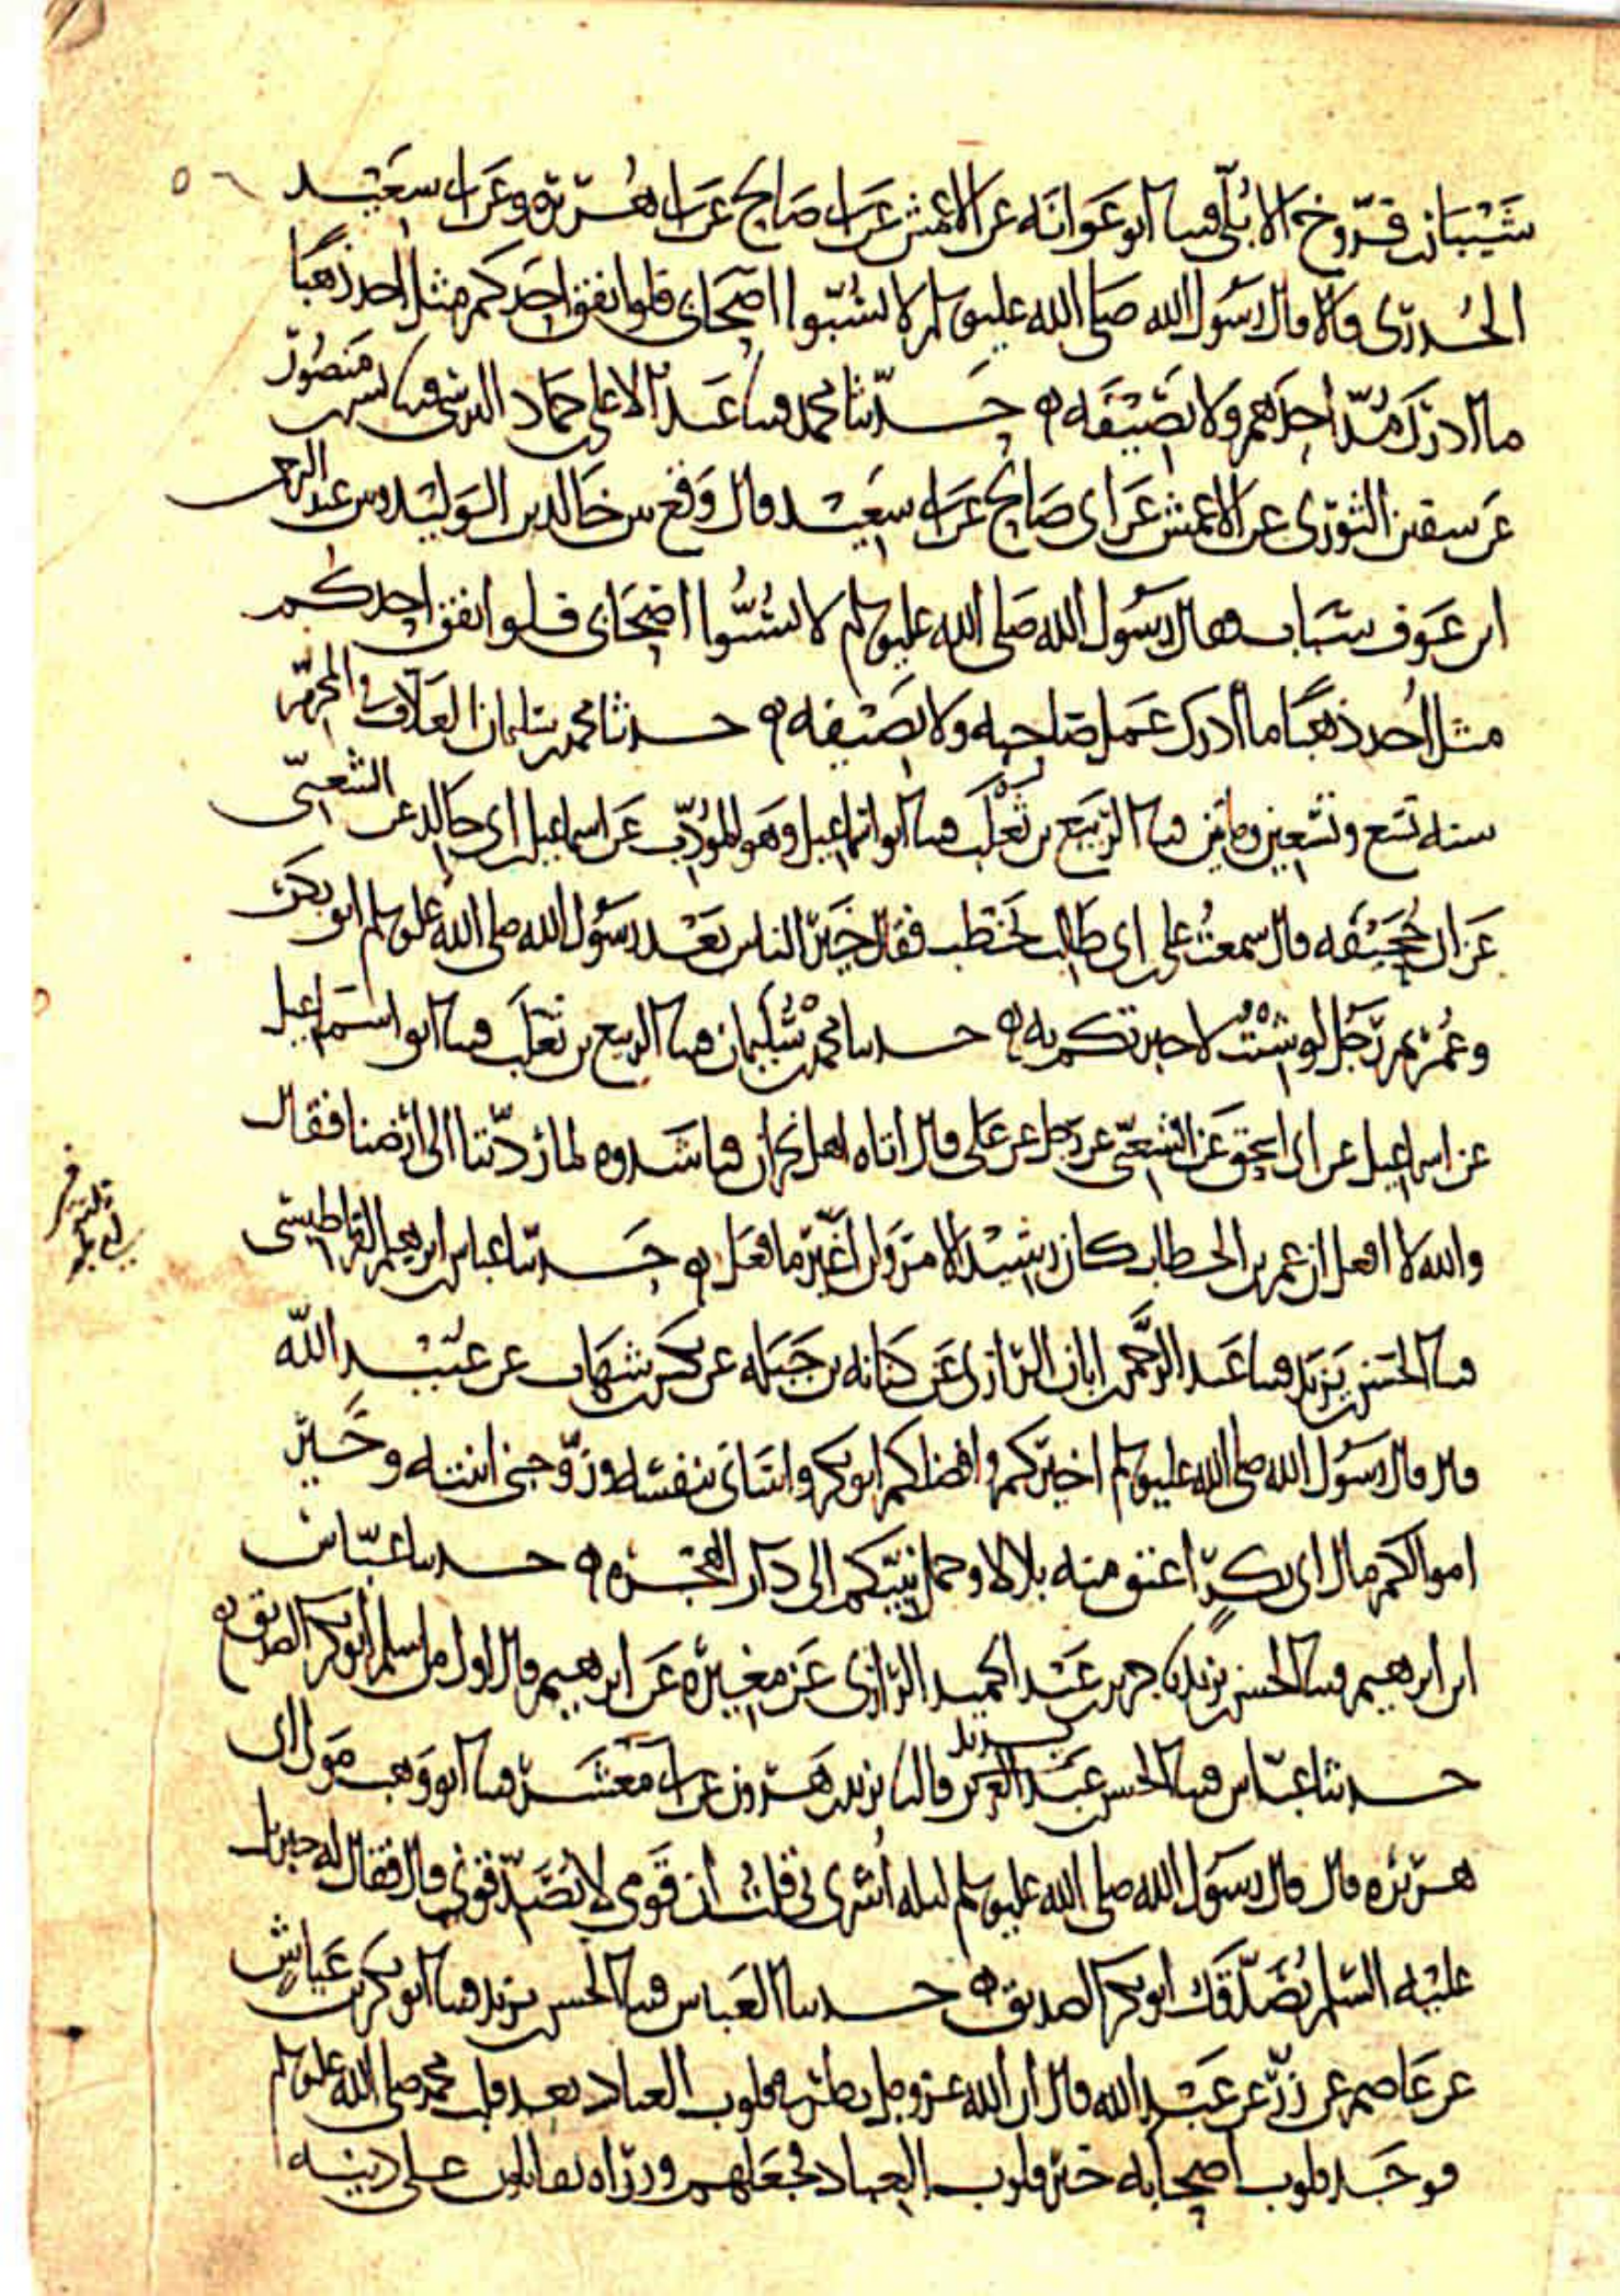 شيبان بن فروخ الابلي قثنا ابو عوانه عن الاعمش عن ابي صالح عن ابي هريره وعن ابي سعيد
الخدري قالا قال رسول الله صلى الله عليه وسلم لا تسبوا اصحابي فلو انفق احدكم مثل احد ذهبا
ما ادرك مد احدهم ولا نصيفه حدثنا محمد قثنا عبد الاعلى حماد النرسي قثنا بشر بن منصور
عن سفين الثوري عن الاعمش عن ابي صالح عن ابي سعيد قال وقع بين خالد بن الوليد وبين عبد الرحمن
ابن عوف سباب فقال رسول الله صلى الله عليه وسلم لا تسبوا اصحابي فلو انفق احدكم
مثل احد ذهبا ما ادرك عمل صاحبه ولا نصيفه حدثنا محمد بن سليمان العلاف في المحرم
سنه تسع وتسعين ومايتين قثنا الربيع بن ثعلب قثنا ابو اسماعيل وهو المؤدب عن اسماعيل بن ابي خالد عن الشعبي
عن ابي جحيفه قال سمعت علي بن ابي طالب يخطب فقال خير الناس بعد رسول الله صلى الله عليه وسلم ابو بكر
وعمر ثم رجل لو شئت لاخبرتكم به حدثنا محمد بن سليمان قثنا الربيع بن ثعلب قثنا ابو اسماعيل
عن اسماعيل عن ابي اسحق عن الشعبي عن رجل عن علي قال اتاه اهل نجران فناشدوه لما رددتنا الى ارضنا فقال
والله لا افعل ان عمر بن الخطاب كان رشيد الامر ولن اغير ما فعل حدثنا عباس ابن ابرهيم القراطيسي
قثنا الحسن بن يزيد قثنا عبد الرحمن ابان الرازي عن كنانه بن جبله عن بكر بن شهاب عن عبيد الله
قال قال رسول الله صلى الله عليه وسلم اخيركم وافضلكم ابو بكر واساني بنفسه وزوجني ابنته وخير
اموالكم مال ابي بكر اعتق منه بلالا وحمل نبيكم الى دار الهجره حدثنا عباس
ابن ابرهيم قثنا الحسن بن يزيد نا جرير بن عبد الحميد الرازي عن مغيره عن ابرهيم قال اول من اسلم ابو بكر الصديق
حدثنا عباس قثنا الحسن بن يزيد عبد العزيز قالنا يزيد بن هرون عن ابي معشر قثنا ابو وهب مولى ابي
هريره قال قال رسول الله صلى الله عليه وسلم ليله اسري بي قلت ان قومي لا يصدقوني قال فقال له جبريل
عليه السلم يصدقك ابو بكر الصديق حدثنا العباس قثنا الحسن بن يزيد قثنا ابو بكر بن عياش
عن عاصم عن زر عن عبد الله قال ان الله عز وجل نظر في قلوب العباد بعد قلب محمد صلى الله عليه وسلم
فوجد قلوب اصحابه خير قلوب العباد فجعلهم وزراه يقاتلون على دينه